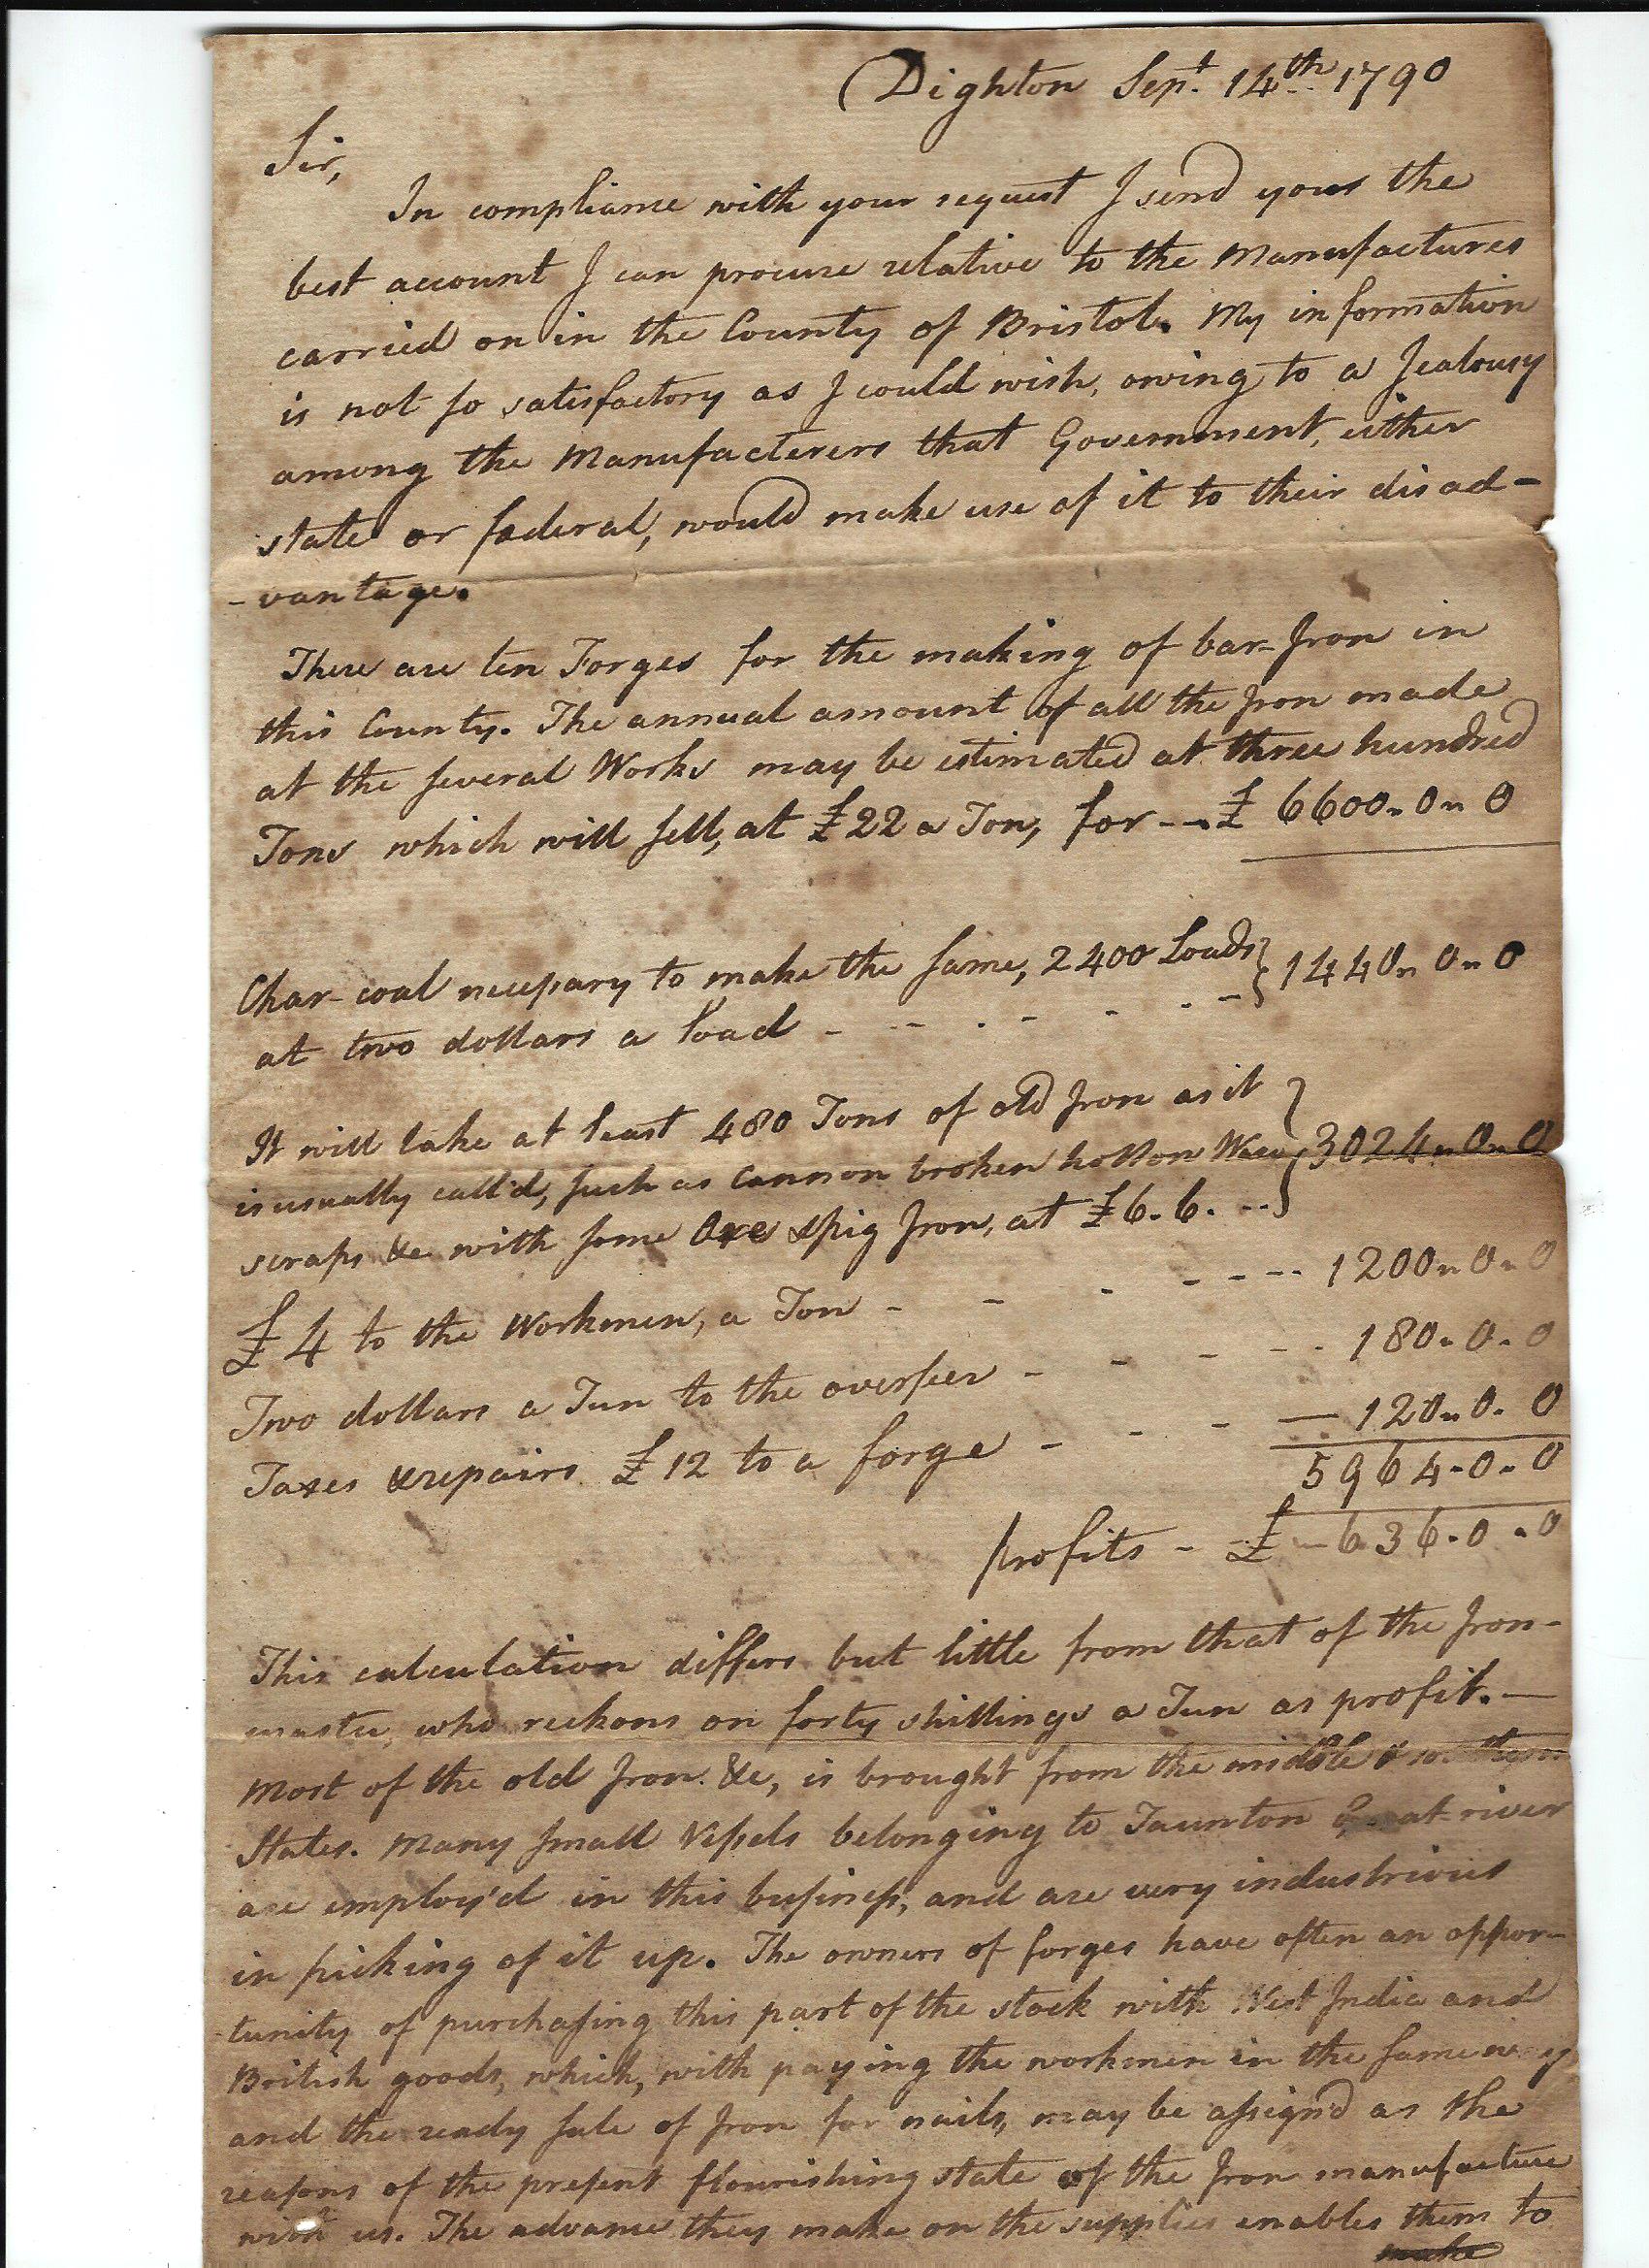 Dighton Sept. 14th. 1790
Sir,
In compliance with your request I send you the
best account I can procure relative to the Manufactures
carried on in the County of Bristol. My information
is not so satisfactory as I could wish, owing to a Jealousy
among the Manufacterers that Government, either
state or federal, would make use of it to their disad-
-vantage.
There are ten Forges for the making of bar-Iron in
this County. The annual amount of all the Iron made
at the several Works may be estimated at three hundred
Tons which will sell, at £22 a Ton, for -- £ 6600 " 0 " 0
Char-coal necessary to make the same, 2400 Loads } 1440 " 0 " 0
at two dollars a load - - - - - - -
It will take at least 480 Tons of old Iron as it
is usually call'd, such as Cannon broken hollow Ware } 3024 " 0 " 0
scraps &c with some Ore & pig Iron, at £6.6. --
£4 to the Workmen, a Ton - - - - - - - 1200 " 0 " 0
Two dollars a Tun to the overseer - - - - - 180 " 0 " 0
Taxes & repairs £12 to a forge - - - — 120 " 0 " 0
5964 - 0 - 0
profits - £ - 636 - 0 - 0
This calculation differs but little from that of the Iron-
master, who reckons on forty shillings a Tun as profit. —
Most of the old Iron &c, is brought from the middle & southern
States. Many small Vessels belonging to Taunton Great river
are employ'd in this business, and are very industrious
in picking of it up. The owners of forges have often an oppor-
-tunity of purchasing this part of the stock with West India and
British goods, which, with paying the workmen in the same way
and the ready sale of Iron for nails, may be assign'd as the
reasons of the present flourishing state of the Iron manufacture
with us. The advance they make on the supplies enables them to
make